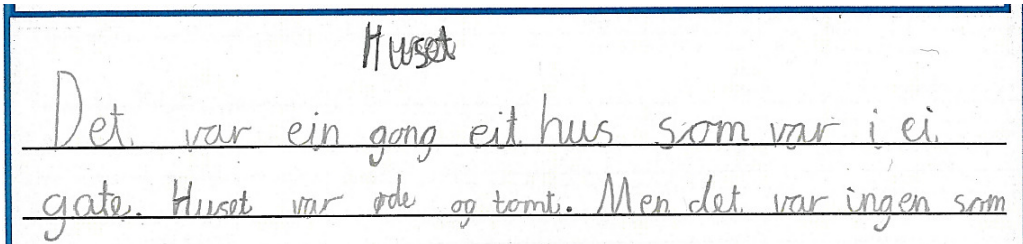 Huset
Det var ein gong eit hus som var i ei
gate. Huset var øde og tomt. Men det var ingen som